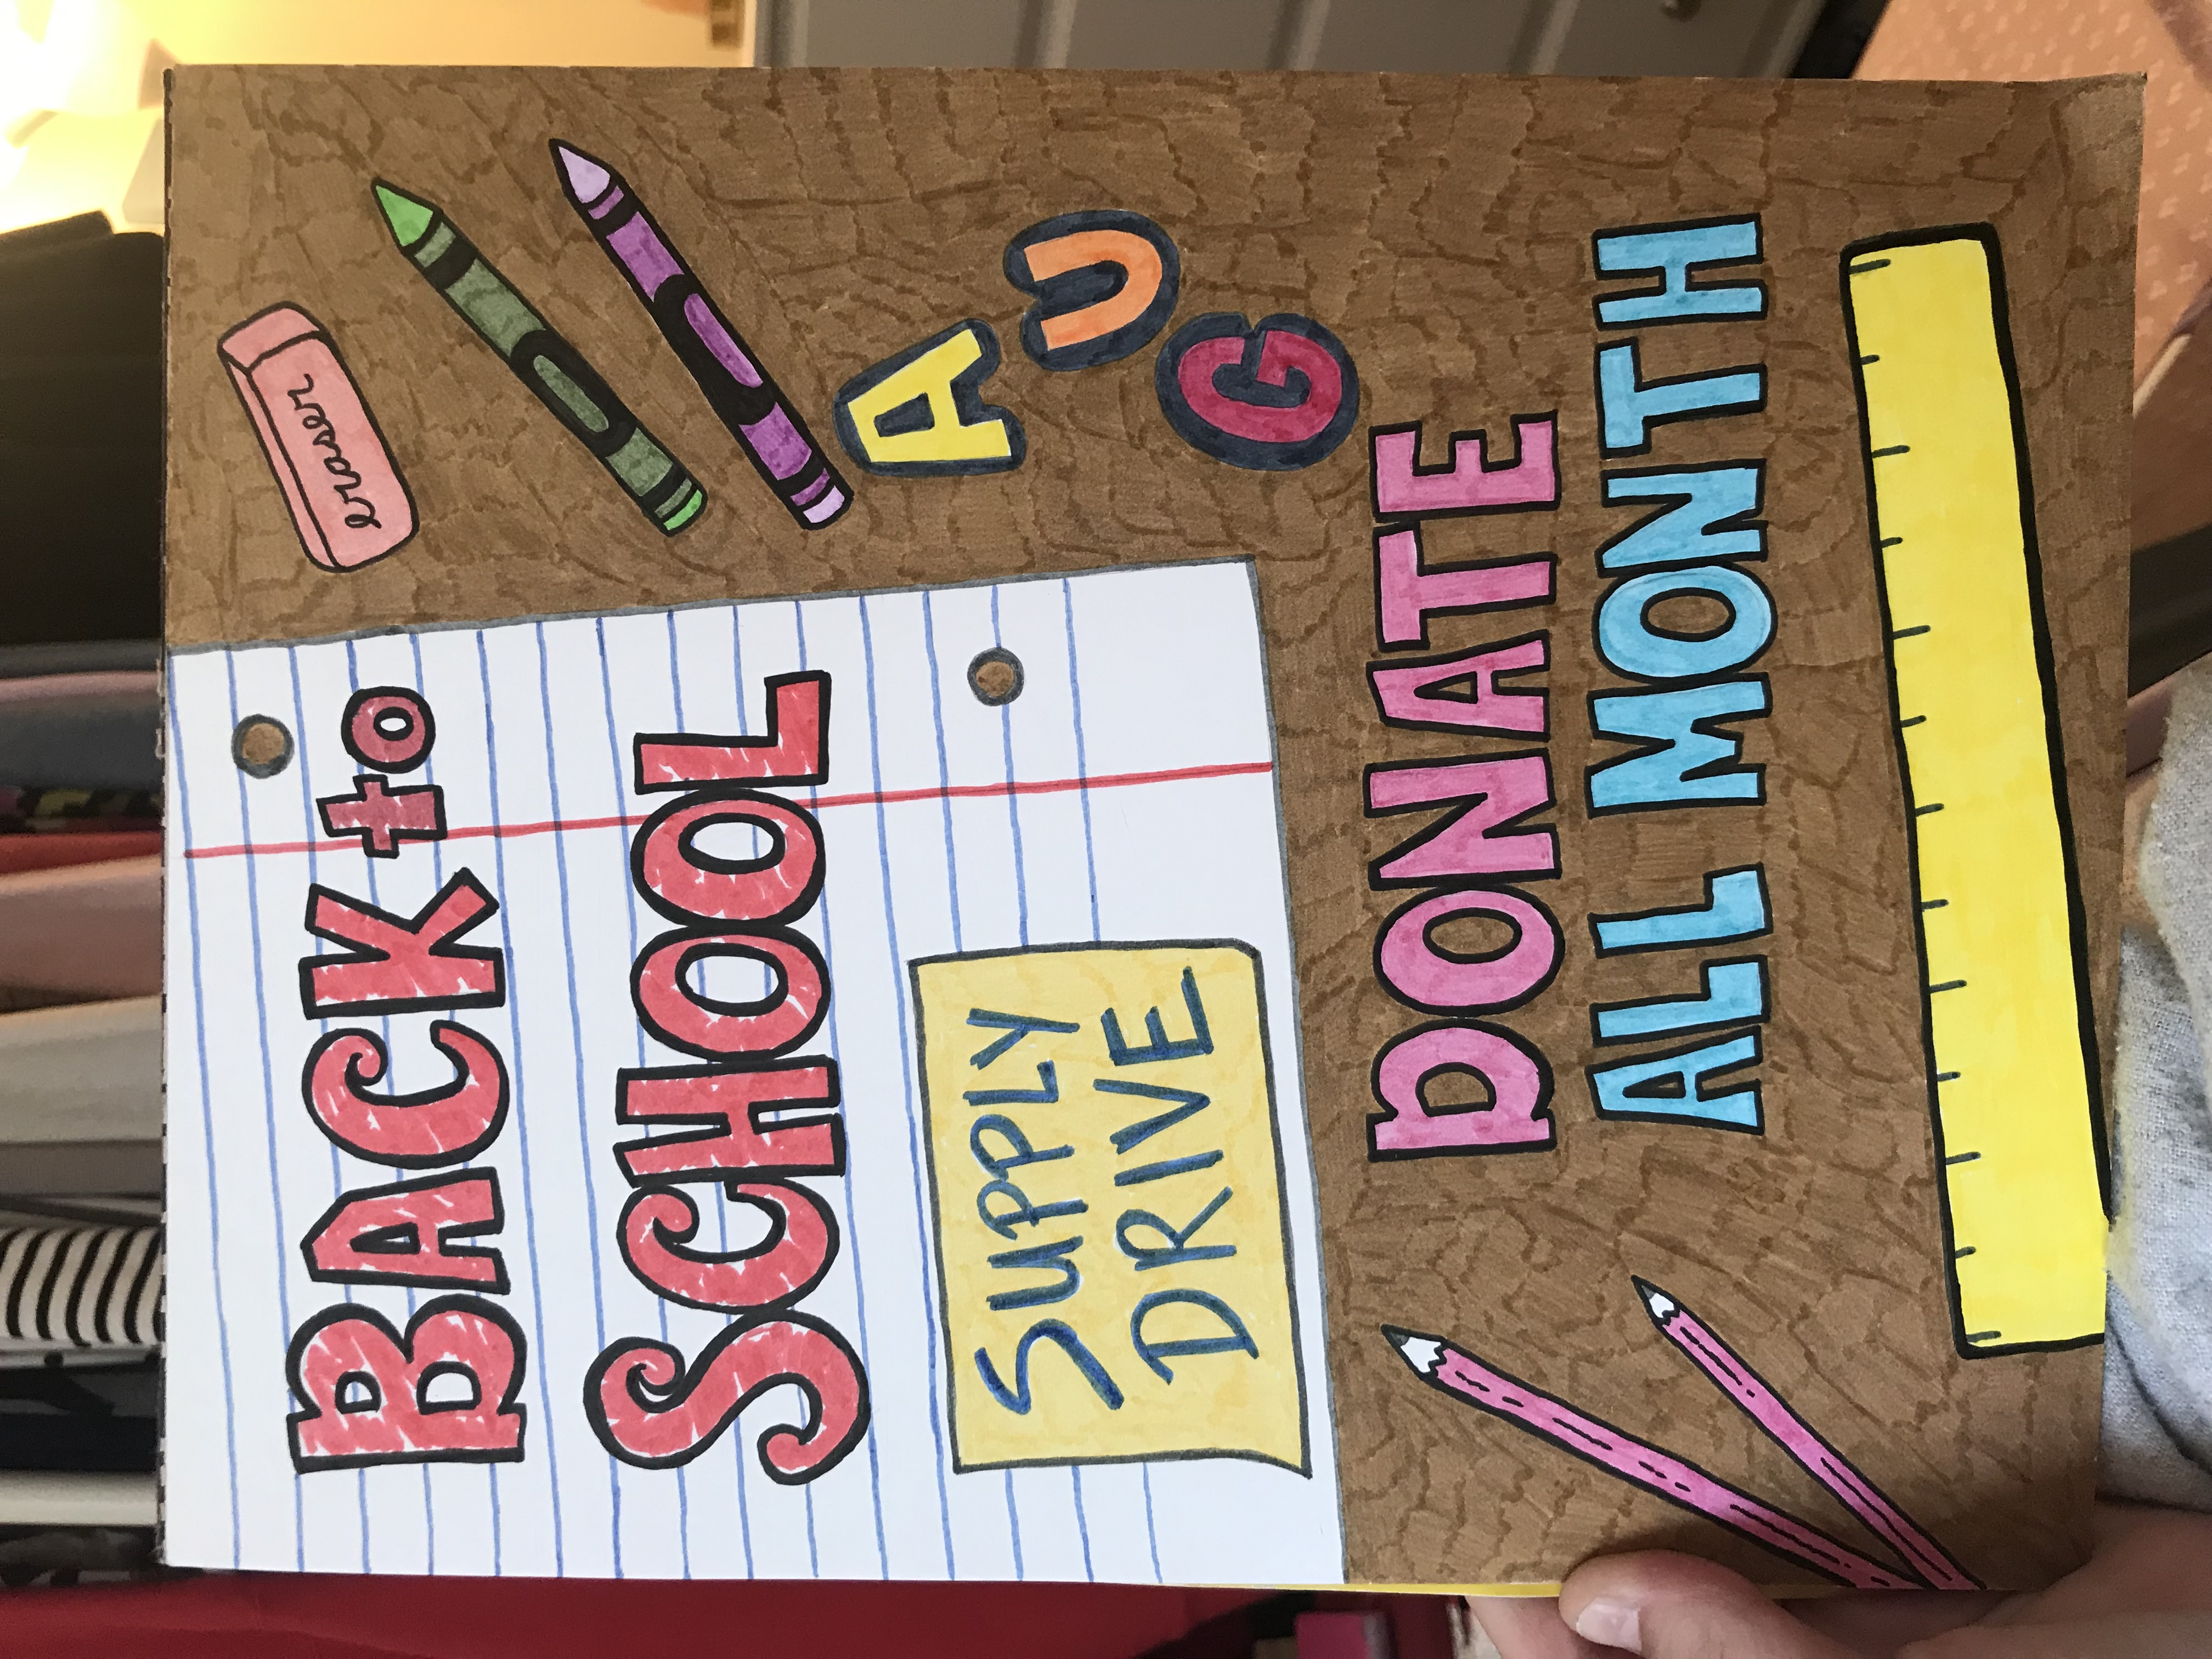 BACK to
SCHOOL
SUPPLY
DRIVE
eraser
AUG
DONATE
ALL MONTH